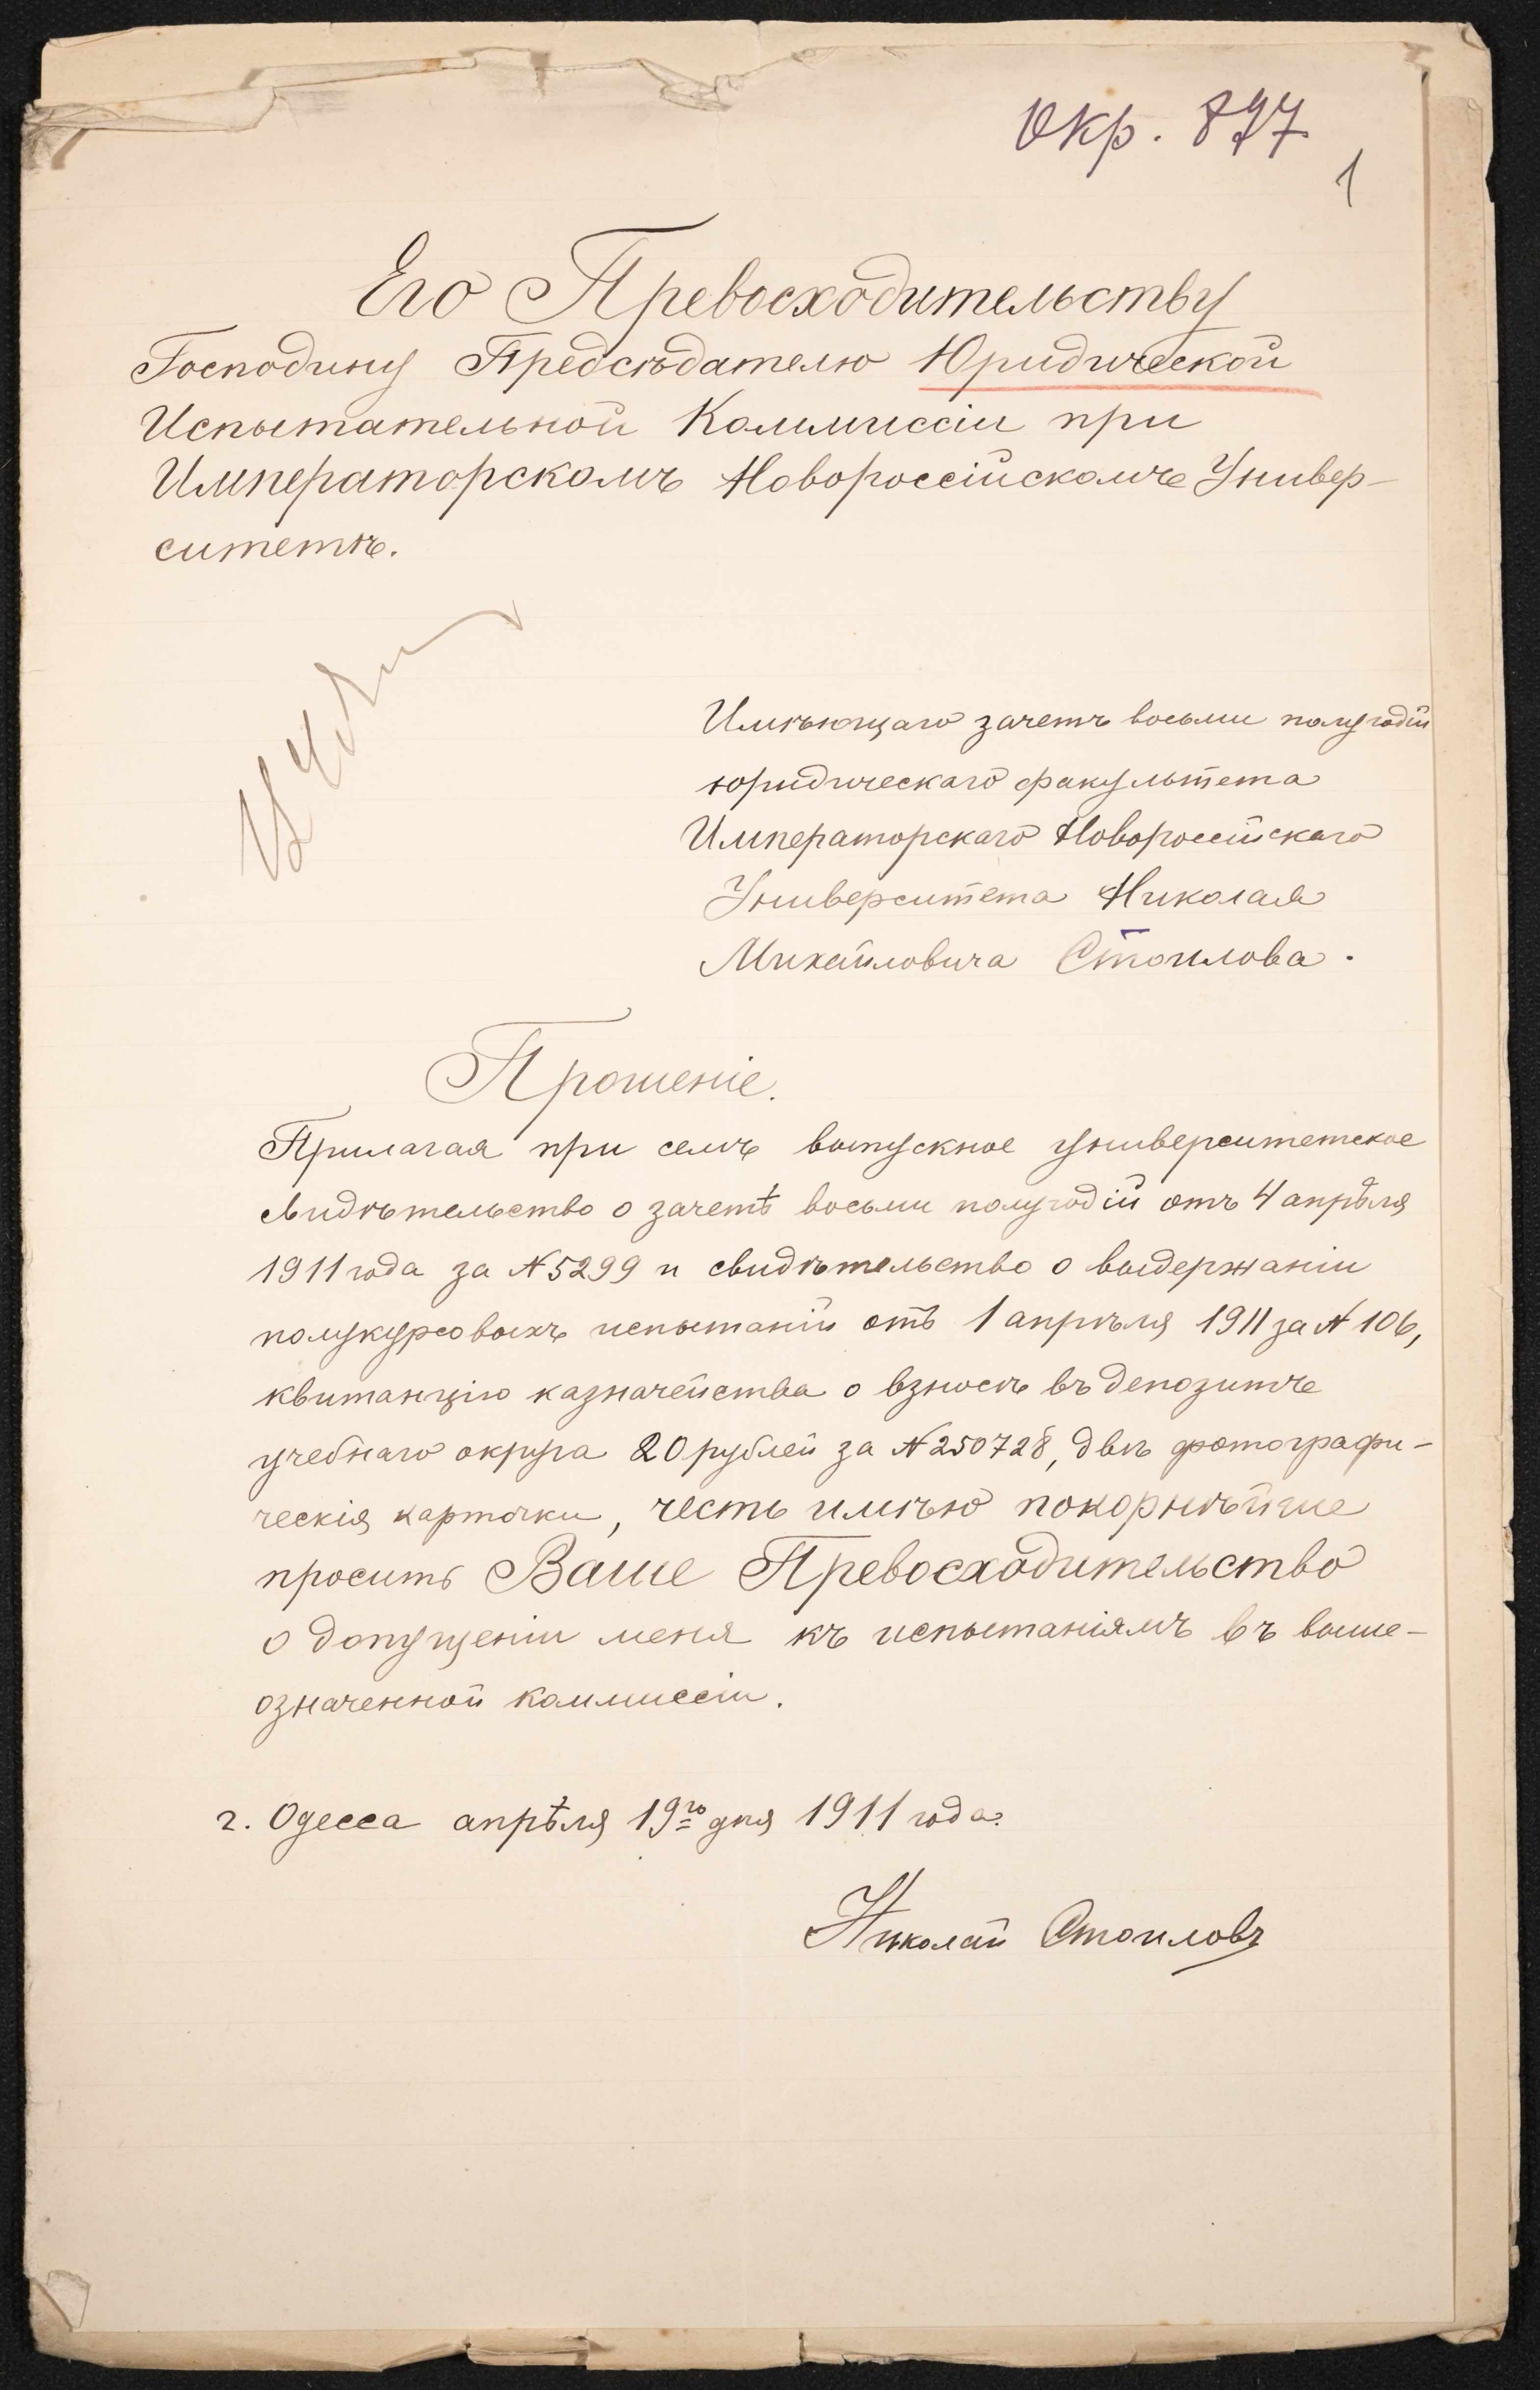 Окр. 897
1
Его Превосходительству
Господину Предсѣдателю Юридической
Испытательной Коммиссіи при
Императорскомъ Новороссійскомъ Универ-
ситетѣ.
Имѣющаго зачетъ восьми полугодій
юридическаго факультета
Императорскаго Новороссійскаго
Университета Николая
Михайловича Стоилова.
Прошеніе.
Прилагая при семъ выпускное университетское
свидѣтельство о зачетѣ восьми полугодій отъ 4 апрѣля
1911 года за № 5299 и свидѣтельство о выдержаніи
полукурсовыхъ испытаній отъ 1 апрѣля 1911 за № 106,
квитанцію казначейства о взносѣ въ депозитъ
учебнаго округа 20 рублей за № 250728, двѣ фотографи-
ческія карточки, честь имѣю покорнѣйше
просить Ваше Превосходительство
о допущеніи меня къ испытаніямъ въ выше-
означенной коммиссіи.
г. Одесса апрѣля 19го дня 1911 года.
Николай Стоиловъ